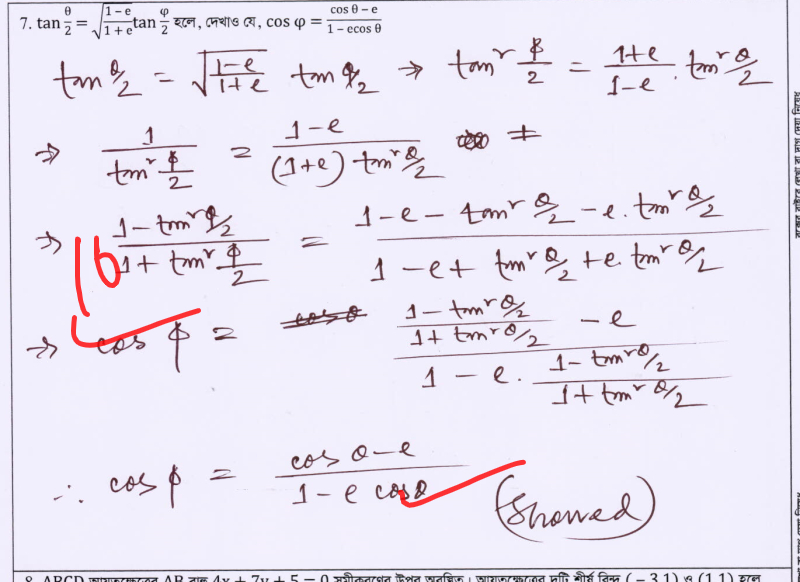 7. tan θ/2 = √((1−e)/(1+e)) tan φ/2 হলে, দেখাও যে, cos φ = (cos θ − e)/(1 − ecos θ)
tan θ/2 = √((1−e)/(1+e)) tan φ/2 ⇒ tan² φ/2 = (1+e)/(1−e) . tan² θ/2
⇒ 1/(tan² φ/2) = (1−e)/((1+e) tan² θ/2)
⇒ (1 − tan² φ/2)/(1 + tan² φ/2) = (1 − e − tan² θ/2 − e. tan² θ/2)/(1 − e + tan² θ/2 + e. tan² θ/2)
⇒ cos φ = ((1 − tan² θ/2)/(1 + tan² θ/2) − e)/(1 − e. (1 − tan² θ/2)/(1 + tan² θ/2))
∴ cos φ = (cos θ − e)/(1 − e cos θ) (Showed)
8. ABCD আয়তক্ষেত্রের AB বাহু 4x + 7y + 5 = 0 সমীকরণের উপর অবস্থিত। আয়তক্ষেত্রের দুটি শীর্ষ বিন্দু (−3,1) ও (1,1) হলে